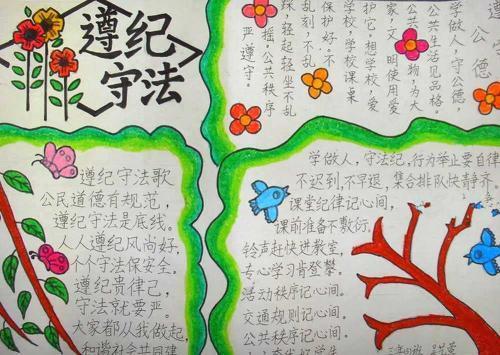 遵纪
守法
公德
学做人，守公德，
公共生活见品格。
公共物，为大
家，文明使用爱
护它。想学校，爱
学校，学校课桌
保护好，不
乱刻，不乱
踩，轻起轻坐不乱
摇，公共秩序
严遵守。
遵纪守法歌
公民道德有规范，
遵纪守法是底线。
人人遵纪风尚好，
个个守法保安全。
遵纪贵律己，
守法就要严。
大家都从我做起，
和谐社会共同建
学做人，守法纪，行为举止要自律
不迟到，不早退，集合排队快静齐。
课堂纪律记心间，
课前准备不敷衍。
铃声赶快进教室，
专心学习肯登攀。
活动秩序记心间。
交通规则记心间。
公共秩序记心间。